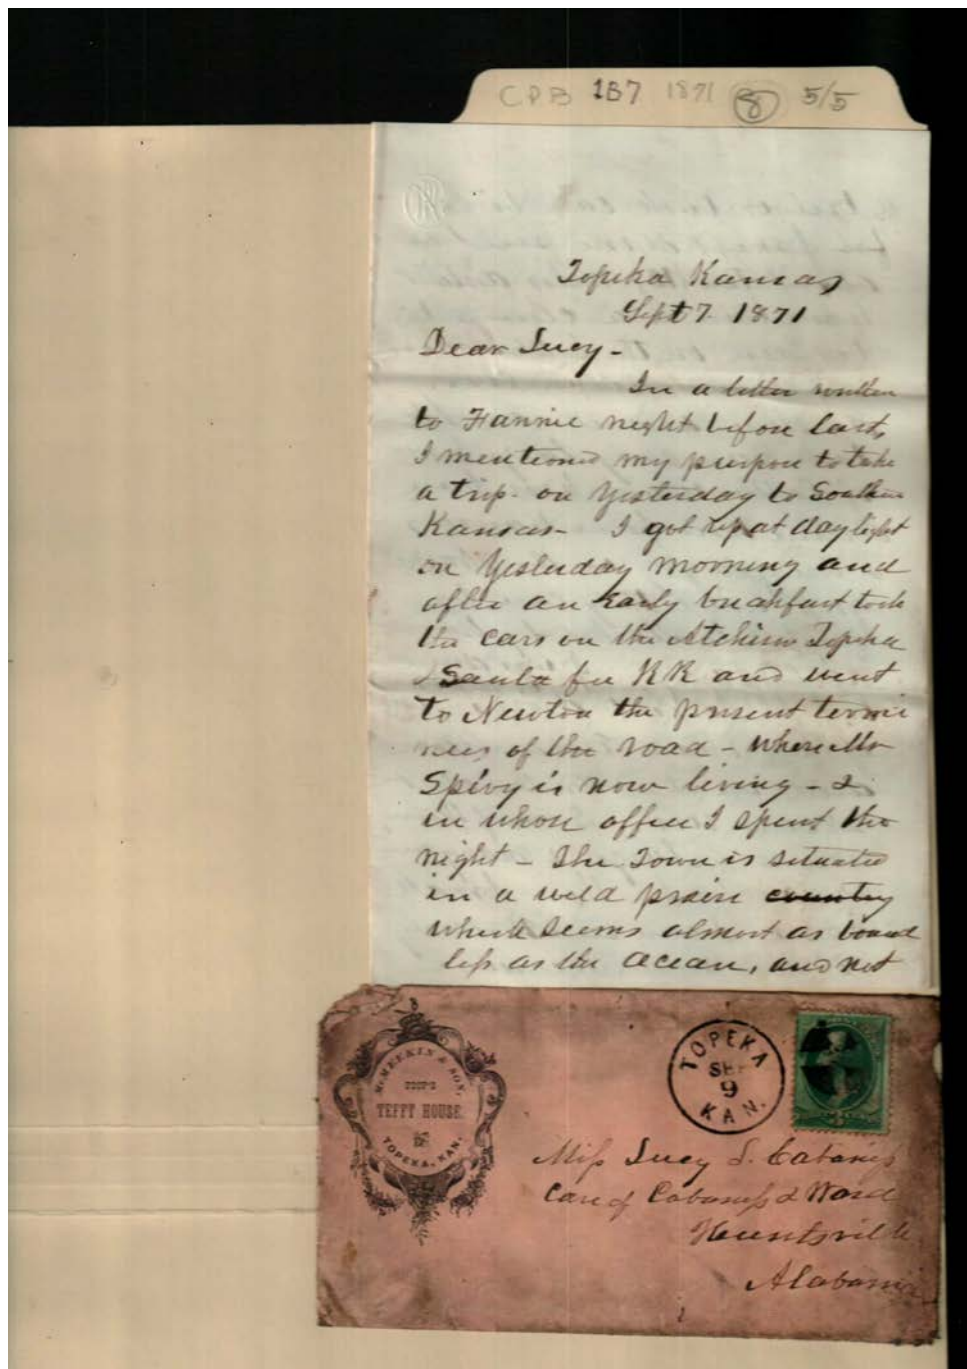 CPB 187 1871 8 5/5
Topeka Kansas
Sept 7. 1871
Dear Lucy -
In a letter written
to Fannie night before last,
I mentioned my purpose to take
a trip - on Yesterday to Southern
Kansas - I got up at daylight
on Yesterday morning and
after an Early breakfast took
the cars on the Atchison Topeka
& Santa fee RR and went
to Newton the present termi
nus of the road - where Mr
Spivy is now living - &
in whose office I spent the
night - The Town is situated
in a wild prairie country
which seems almost as bound
less as the Ocean, and not
McMEEKIN & SON,
PROP'S
TEFFT HOUSE
TOPEKA, KAN.
TOPEKA
SEP
9
KAN.
Miss Lucy S. Cabaniss
Care of Cabaniss & Ward
Huntsville
Alabama